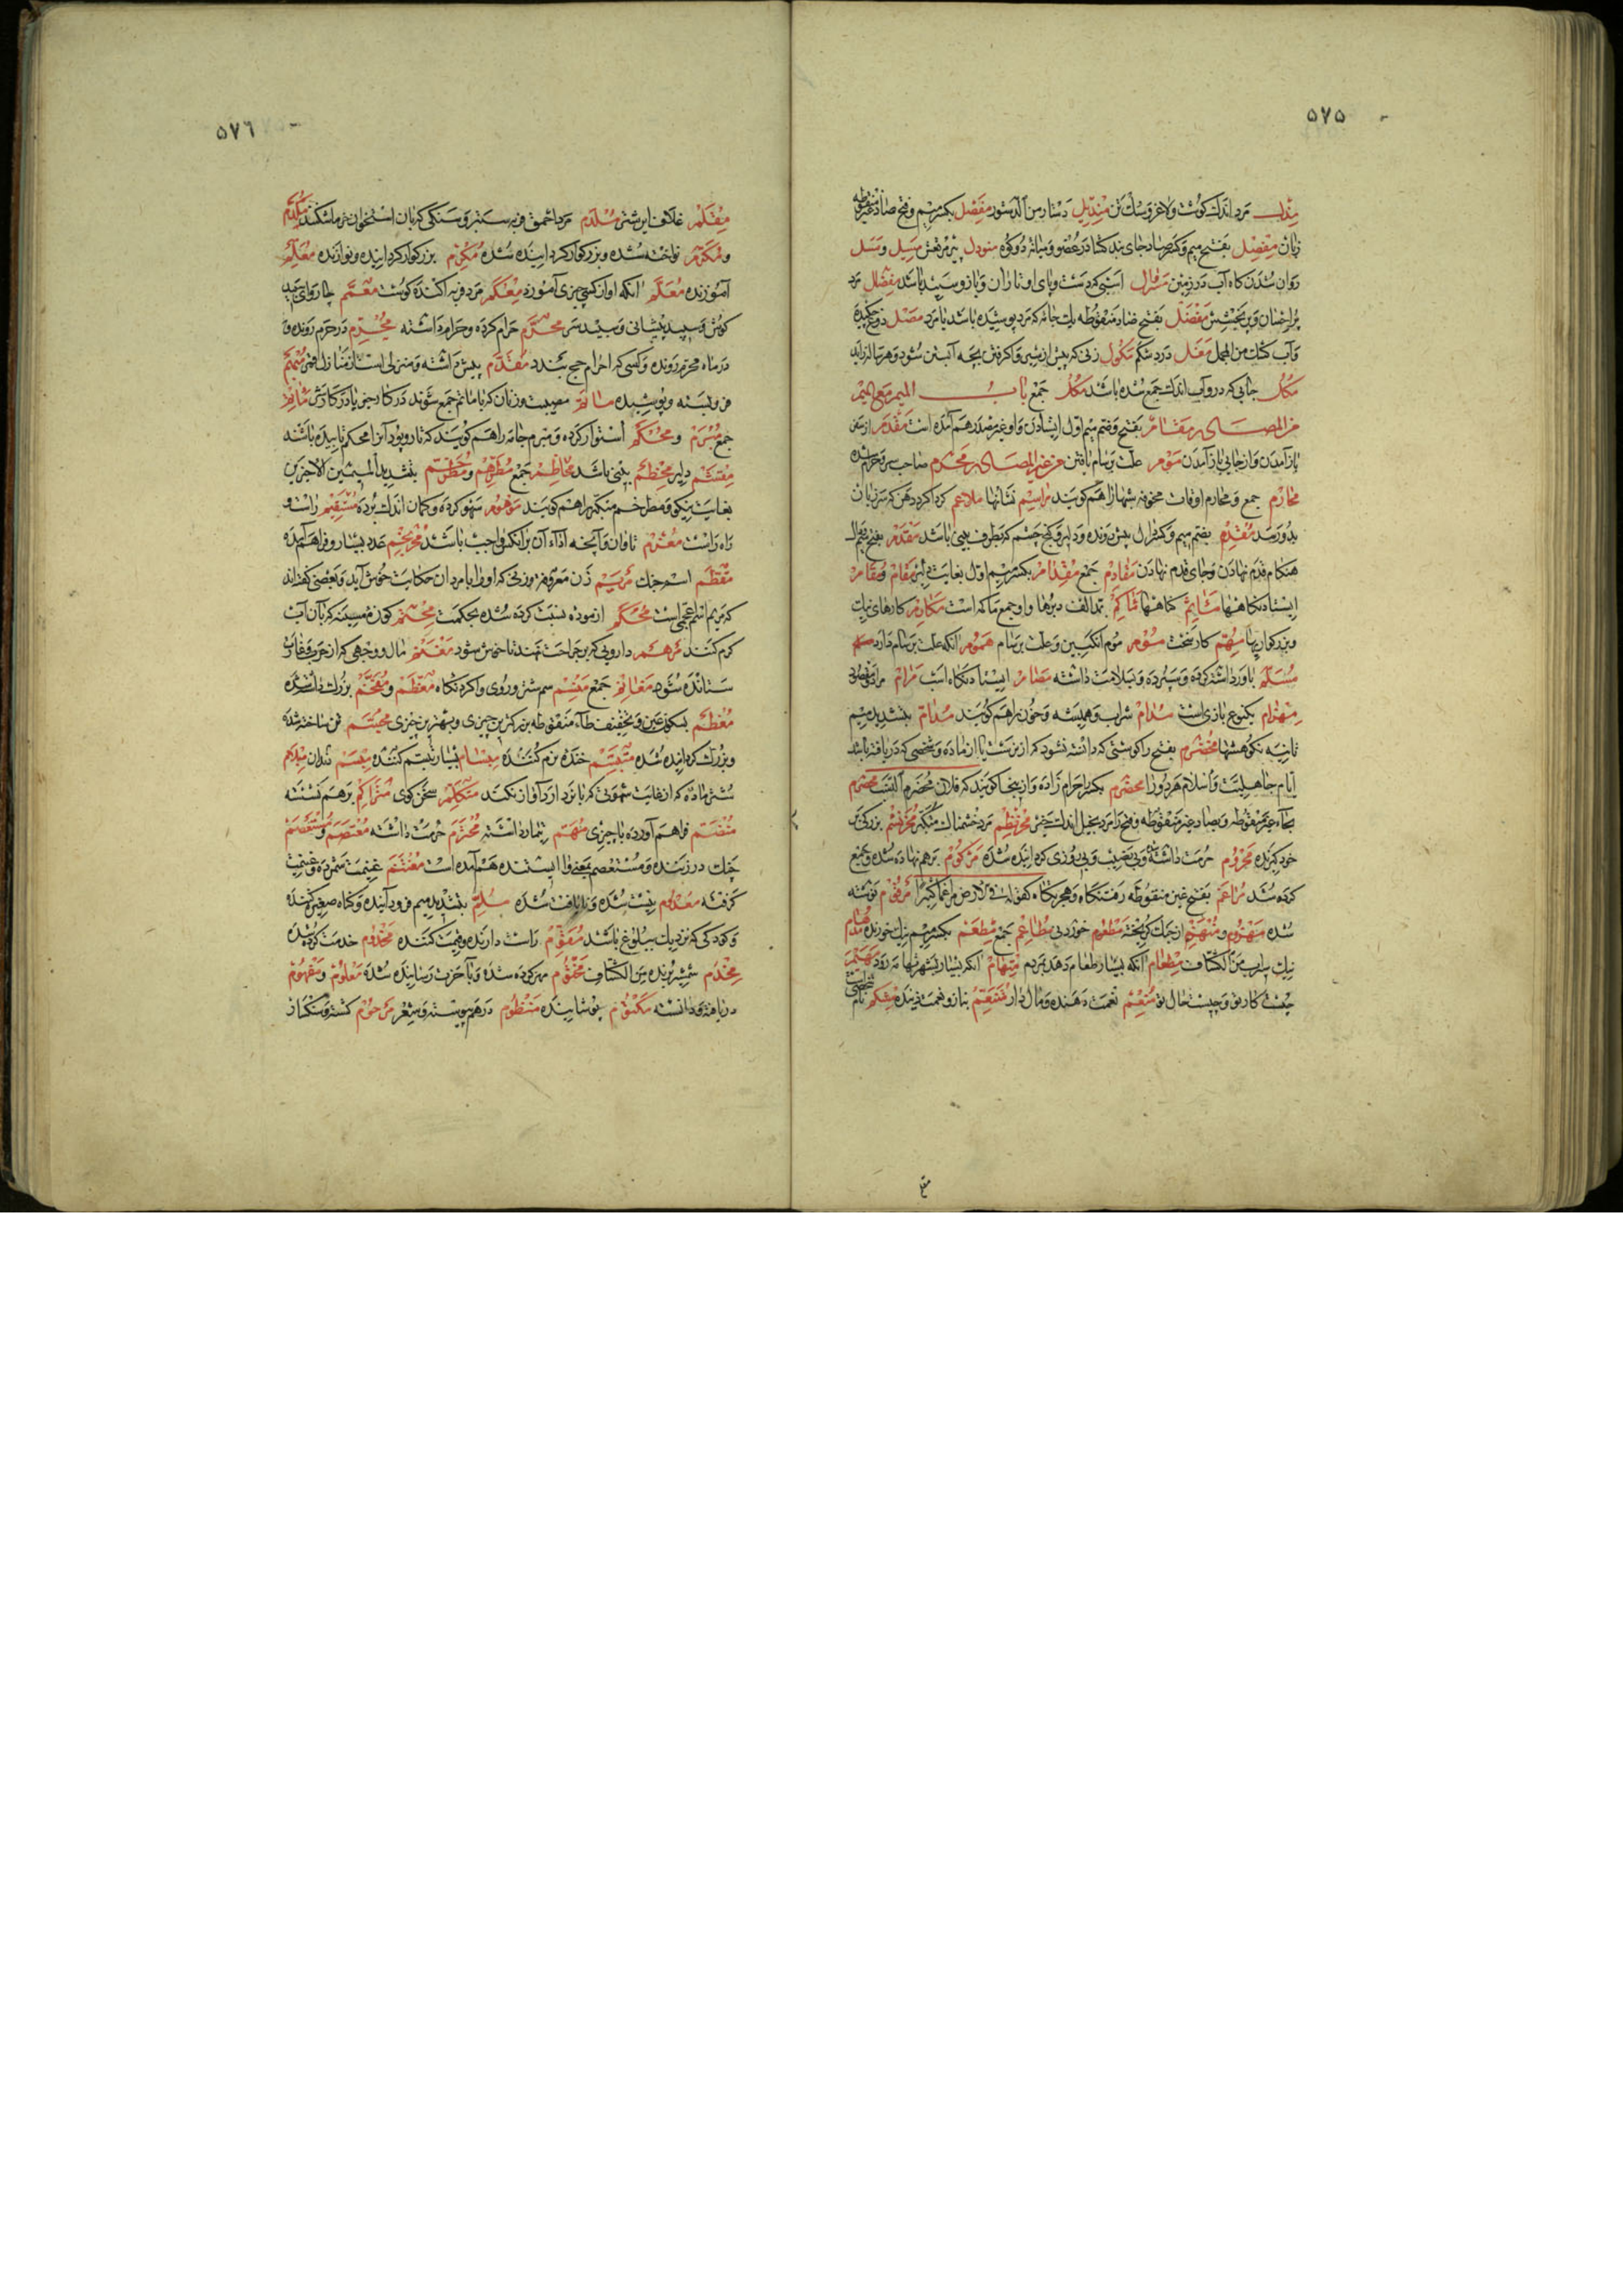 ۵۷۵
مرد اندك كوشت ولاغر وسبك تن منديل دستار من الدستور مفصل بكسر ميم وفتح صاد غير منقوطه
زبان مفصل بفتح ميم وكسر صاد جاى بند كشاد در عضو وميانهٔ دو كوه مسيل ومسل
روان شدن كاه آب در زمين اسبى كه دست وپاى او تا ران وبازو سپيد باشد مفضال مرد
مفضل بفتح ضاد منقوطه يك جامه كه مرد پوشيده باشد يا مرد مصل دوغ چكيده
وآب كشك من المجمل مغل درد شكم مكول زنى كه پيش از شير واكرفتن بچه آبستن شود وهر ساله زايد
مكل چاهى كه درو آب اندك جمع شده باشد مكل جمع باب الميم مع الميم
من المصادر مقام بفتح وضم ميم اول ايستادن واو غير مصدر هم آمده است مقدم از سفر
باز آمدن واز جائى باز آمدن موم علت برسام يافتن من غير المصادر محرم صاحب سر وحرام شده
محارم جمع ومحارم اوقات مخوفه شبها را هم كويند مراسم نشانها ملاغم كرداكرد دهن كه سر زبان
بدو رسد مقدم بضم ميم وكسر دال پيش رونده ودلير وكنج چشم كه بطرف بينى باشد مقدم بفتح ميم ودال
هنكام قدم نهادن وجاى قدم نهادن مقادم جمع مقدام بكسر ميم اول بغايت دلير مقام ومقام
ايستادنكاهها مآثم كناهها مكارم كارهاى نيك
وبزركواريها مهم كار سخت موم موم انكبين وعلت برسام مموم آنكه علت برسام دارد
مسلم باور داشته كرده وسپرده وبسلامت داشته مقام ايستادنكاه اسب مرام مراد ومقصود
مهزام يكنوع بازى است مدام شراب وهميشه وخون را هم كويند مدام بتشديد ميم
ثانيه نكوهشها مخضرم بفتح را كوشتى كه دانسته نشود كه از نر است يا از ماده وشخصى كه دريافته باشد
ايام جاهليت واسلام هر دو را مخضرم بكسر را حرام زاده واز ينجا كويند كه فلان مخضرم النسب محضرم
بحآء غير منقوطه وبصاد غير منقوطه وفتح را مرد بخيل اندك خير مخرنطم مرد خشمناك متكبر مخرنشم بزركى بر
خود كيرنده محروم حرمت داشته وبى نصيب وبى روزى كردانيده شده مركوم بر هم نهاده شده وجمع
كرده شد مراغم بفتح غين منقوطه رفتنكاه وهجرتكاه كقوله تعالى فى الارض مراغما كثيرا مرقوم نوشته
شده مهزوم ومنهزم از جنك كريخته مطعوم خوردنى مطاعم جمع مطعم بكسر ميم نيك خورنده مدام
نيك سراب من الكشاف مطعام آنكه بسيار طعام دهد بمردم متهام آنكه بسيار بشهر تهامه رود مهيم
چيست كار تو وچيست حال تو منعم نعمت دهنده ومال دار متنعم بناز ونعمت زينده مشكم نام شخصى است
مقع
۵۷۶
مقلم غلاف اير شتر ملدم مرد احمق فربه ستبر وسنكى كه بان استخوان خرما شكنند مكرم
ومكرم نواخته شده وبزركوار كردانيده شده مكرم بزركوار كرداننده ونوازنده معلم
آموزنده معلم آنكه او از كسى چيزى آموزد مرد فربه آكنده كوشت معمم چارواى سپيد
كوش وسپيد پيشانى وسپيد سر محرم حرام كرده وحرام داشته محرم در حرم رونده و
در ماه محرم رونده وكسى كه احرام حج بندد مقدم پيش داشته ومنزلى است از منازل قمر
فرو بسته وپوشيده ماتم مصيبت وزنان كه با ماتم جمع شوند در كار خير يا در كار شر مآتم
جمع مبرم ومحكم استوار كرده ومبرم جامه را هم كويند كه تار وپود آنرا محكم تابيده باشند
دلير مخطم بينى باشد مخاطم جمع مطرهم ومطرخم بتشديد الميمين الاخيرين
بغايت نيكو ومطرخم متكبر را هم كويند موهوم سهو كرده وكمان اندك برده مستقيم راست و
راه راست مغرم تاوان وآنچه اداء آن بر آنكس واجب باشد عدد بسيار وفراهم آمده
اسم جنك مريم زن معروفه وزنى كه او را با مردان حكايت خوش آيد وبعضى كفته اند
كه مريم اسم عجمى است محكم ازموده نسبت كرده شده بحكمت كوزه مسينه كه بان آب
كرم كنند مرهم دارويى كه بر جراحت نهند تا خوش شود مغنم مال ووجهى كه از حرب وغارت
ستانده شود مغانم جمع منسم سم شتر وروى واكرد نكاه معظم ومفخم بزرك داشته شده
معظم بسكون عين وتخفيف طآء منقوطه بزركترين چيزى وبهترين چيزى مجسم تن ساخته شده
وبزرك كردانيده شده متبسم خنده نرم كننده مبسام بسيار تبسم كننده مبسم دندان مبلام
شتر ماده كه از غايت شهوتى كه با نر دارد آواز نكند متكلم سخن كوى متراكم بر هم نشسته
منضم فراهم آورده با چيزى متهم تيمار داشته محترم حرمت داشته معتصم ومستعصم
چنك درزننده ومستعصم بمعنى واايستنده هم آمده است مغتنم غنيمت شمرده وغنيمت
كرفته معدوم نيست شده ونايافت شده ملم بتشديد ميم فرود آينده وكناه صغير كننده
وكودكى كه نزديك ببلوغ باشد مقوم راست دارنده وقيمت كننده مخدوم خدمت كرده شده
مخذم شمشير برنده من الكشاف مختوم مهر كرده شده وبآخرت رسانيده شده معلوم ومفهوم
دريافته ودانسته مكتوم پوشانيده منظوم در هم پيوسته وشعر مرحوم كشته وسنكسار